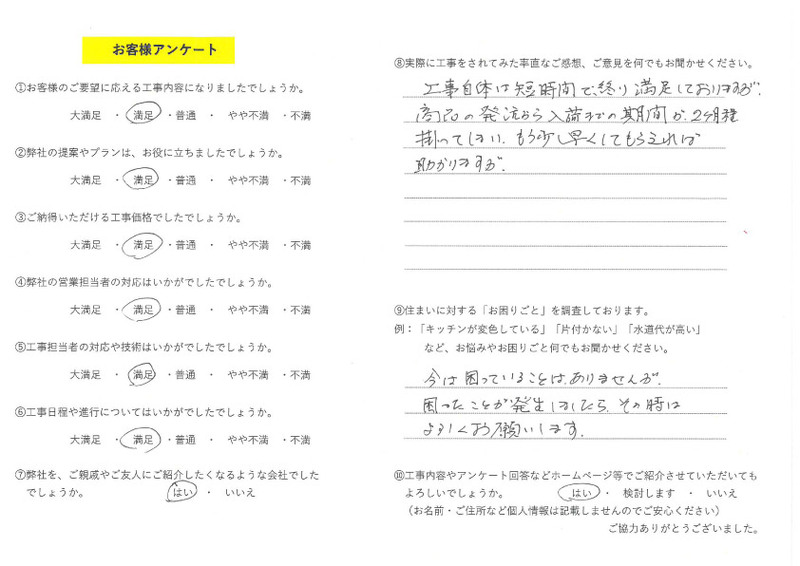 お客様アンケート
①お客様のご要望に応える工事内容になりましたでしょうか。
大満足 ・ 満足 ・普通 ・ やや不満 ・不満
②弊社の提案やプランは、お役に立ちましたでしょうか。
大満足 ・ 満足 ・普通 ・ やや不満 ・不満
③ご納得いただける工事価格でしたでしょうか。
大満足 ・ 満足 ・普通 ・ やや不満 ・不満
④弊社の営業担当者の対応はいかがでしたでしょうか。
大満足 ・ 満足 ・普通 ・ やや不満 ・不満
⑤工事担当者の対応や技術はいかがでしたでしょうか。
大満足 ・ 満足 ・普通 ・ やや不満 ・不満
⑥工事日程や進行についてはいかがでしたでしょうか。
大満足 ・ 満足 ・普通 ・ やや不満 ・不満
⑦弊社を、ご親戚やご友人にご紹介したくなるような会社でした
でしょうか。 はい ・ いいえ
⑧実際に工事をされてみた率直なご感想、ご意見を何でもお聞かせください。
工事自体は短時間で、終り満足しておりますが、
商品の発注から入荷までの期間が、2ヶ月程
掛ってしまい、もう少し早くしてもらえれば
助かりますが。
⑨住まいに対する「お困りごと」を調査しております。
例：「キッチンが変色している」「片付かない」「水道代が高い」
など、お悩みやお困りごと何でもお聞かせください。
今は困っていることは、ありませんが、
困ったことが発生しましたら、その時は
よろしくお願いします。
⑩工事内容やアンケート回答などホームページ等でご紹介させていただいても
よろしいでしょうか。 はい ・ 検討します ・ いいえ
（お名前・ご住所など個人情報は記載しませんのでご安心ください）
ご協力ありがとうございました。